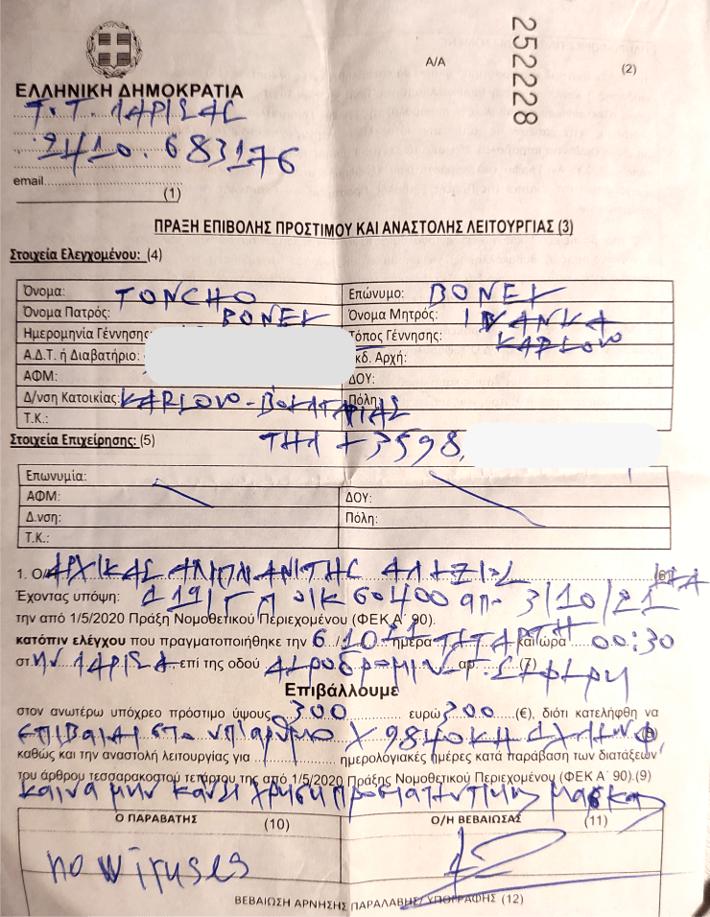 Α/Α
252228
(2)
ΕΛΛΗΝΙΚΗ ΔΗΜΟΚΡΑΤΙΑ
Τ.Τ. ΛΑΡΙΣΑΣ
2410.683176
email
(1)
ΠΡΑΞΗ ΕΠΙΒΟΛΗΣ ΠΡΟΣΤΙΜΟΥ ΚΑΙ ΑΝΑΣΤΟΛΗΣ ΛΕΙΤΟΥΡΓΙΑΣ (3)
Στοιχεία Ελεγχομένου: (4)
Όνομα: TONCHO Επώνυμο: BONEV
Όνομα Πατρός: BONEV Όνομα Μητρός: IVANKA
Ημερομηνία Γέννησης: Τόπος Γέννησης: KARLOVO
Α.Δ.Τ. ή Διαβατήριο: Εκδ. Αρχή:
ΑΦΜ: ΔΟΥ:
Δ/νση Κατοικίας: KARLOVO-ΒΟΥΛΓΑΡΙΑΣ Πόλη:
Τ.Κ.:
Στοιχεία Επιχείρησης: (5) ΤΗΛ +3598
Επωνυμία:
ΑΦΜ: ΔΟΥ:
Δ.νση: Πόλη:
Τ.Κ.:
1. Ο/Η
Έχοντας υπόψη: Δ1α/ΓΠ οικ 60400 από 3/10/21
την από 1/5/2020 Πράξη Νομοθετικού Περιεχομένου (ΦΕΚ Α΄ 90).
κατόπιν ελέγχου που πραγματοποιήθηκε την 6/10 21 ημέρα ΤΕΤΑΡΤΗ και ώρα 00:30
στην ΛΑΡΙΣΑ επί της οδού αρ. (7)
Επιβάλλουμε
στον ανωτέρω υπόχρεο πρόστιμο ύψους 300 ευρώ 300 (€), διότι κατελήφθη να
επιβαίνει στο υπ' αριθμό Χ 9840 ΚΗ
καθώς και την αναστολή λειτουργία για ημερολογιακές ημέρες κατά παράβαση των διατάξεων
του άρθρου τεσσαρακοστού τετάρτου της από 1/5/2020 Πράξης Νομοθετικού Περιεχομένου (ΦΕΚ Α΄ 90).(9)
και να μην κάνει χρήση προστατευτικής μάσκας
Ο ΠΑΡΑΒΑΤΗΣ (10) Ο/Η ΒΕΒΑΙΩΣΑΣ (11)
no wiruses
ΒΕΒΑΙΩΣΗ ΑΡΝΗΣΗΣ ΠΑΡΑΛΑΒΗΣ/ ΥΠΟΓΡΑΦΗΣ (12)